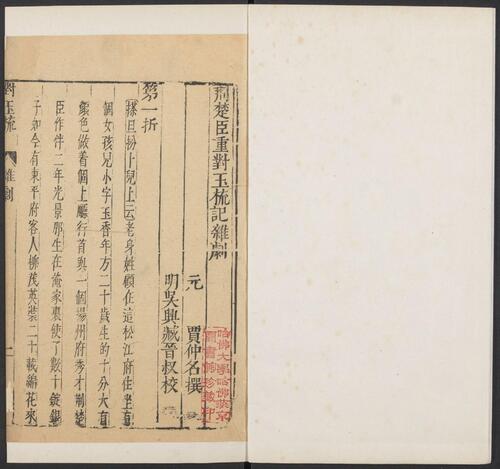 荆楚臣重對玉梳記雜劇
元 賈仲名撰
明吳興臧晉叔校
第一折
搽旦扮卜兒上云老身姓顧在這松江府住坐有
個女孩兒小字玉香年方二十歲生的十分大有
顏色做着個上廳行首與一個揚州府秀才荆楚
臣作伴二年光景那生在俺家裏使了數十錠銀
子如今有東平府客人柳茂英裝二十載綿花來
對玉梳 雜劇 一
哈佛大學哈佛燕京
圖書館珍藏印